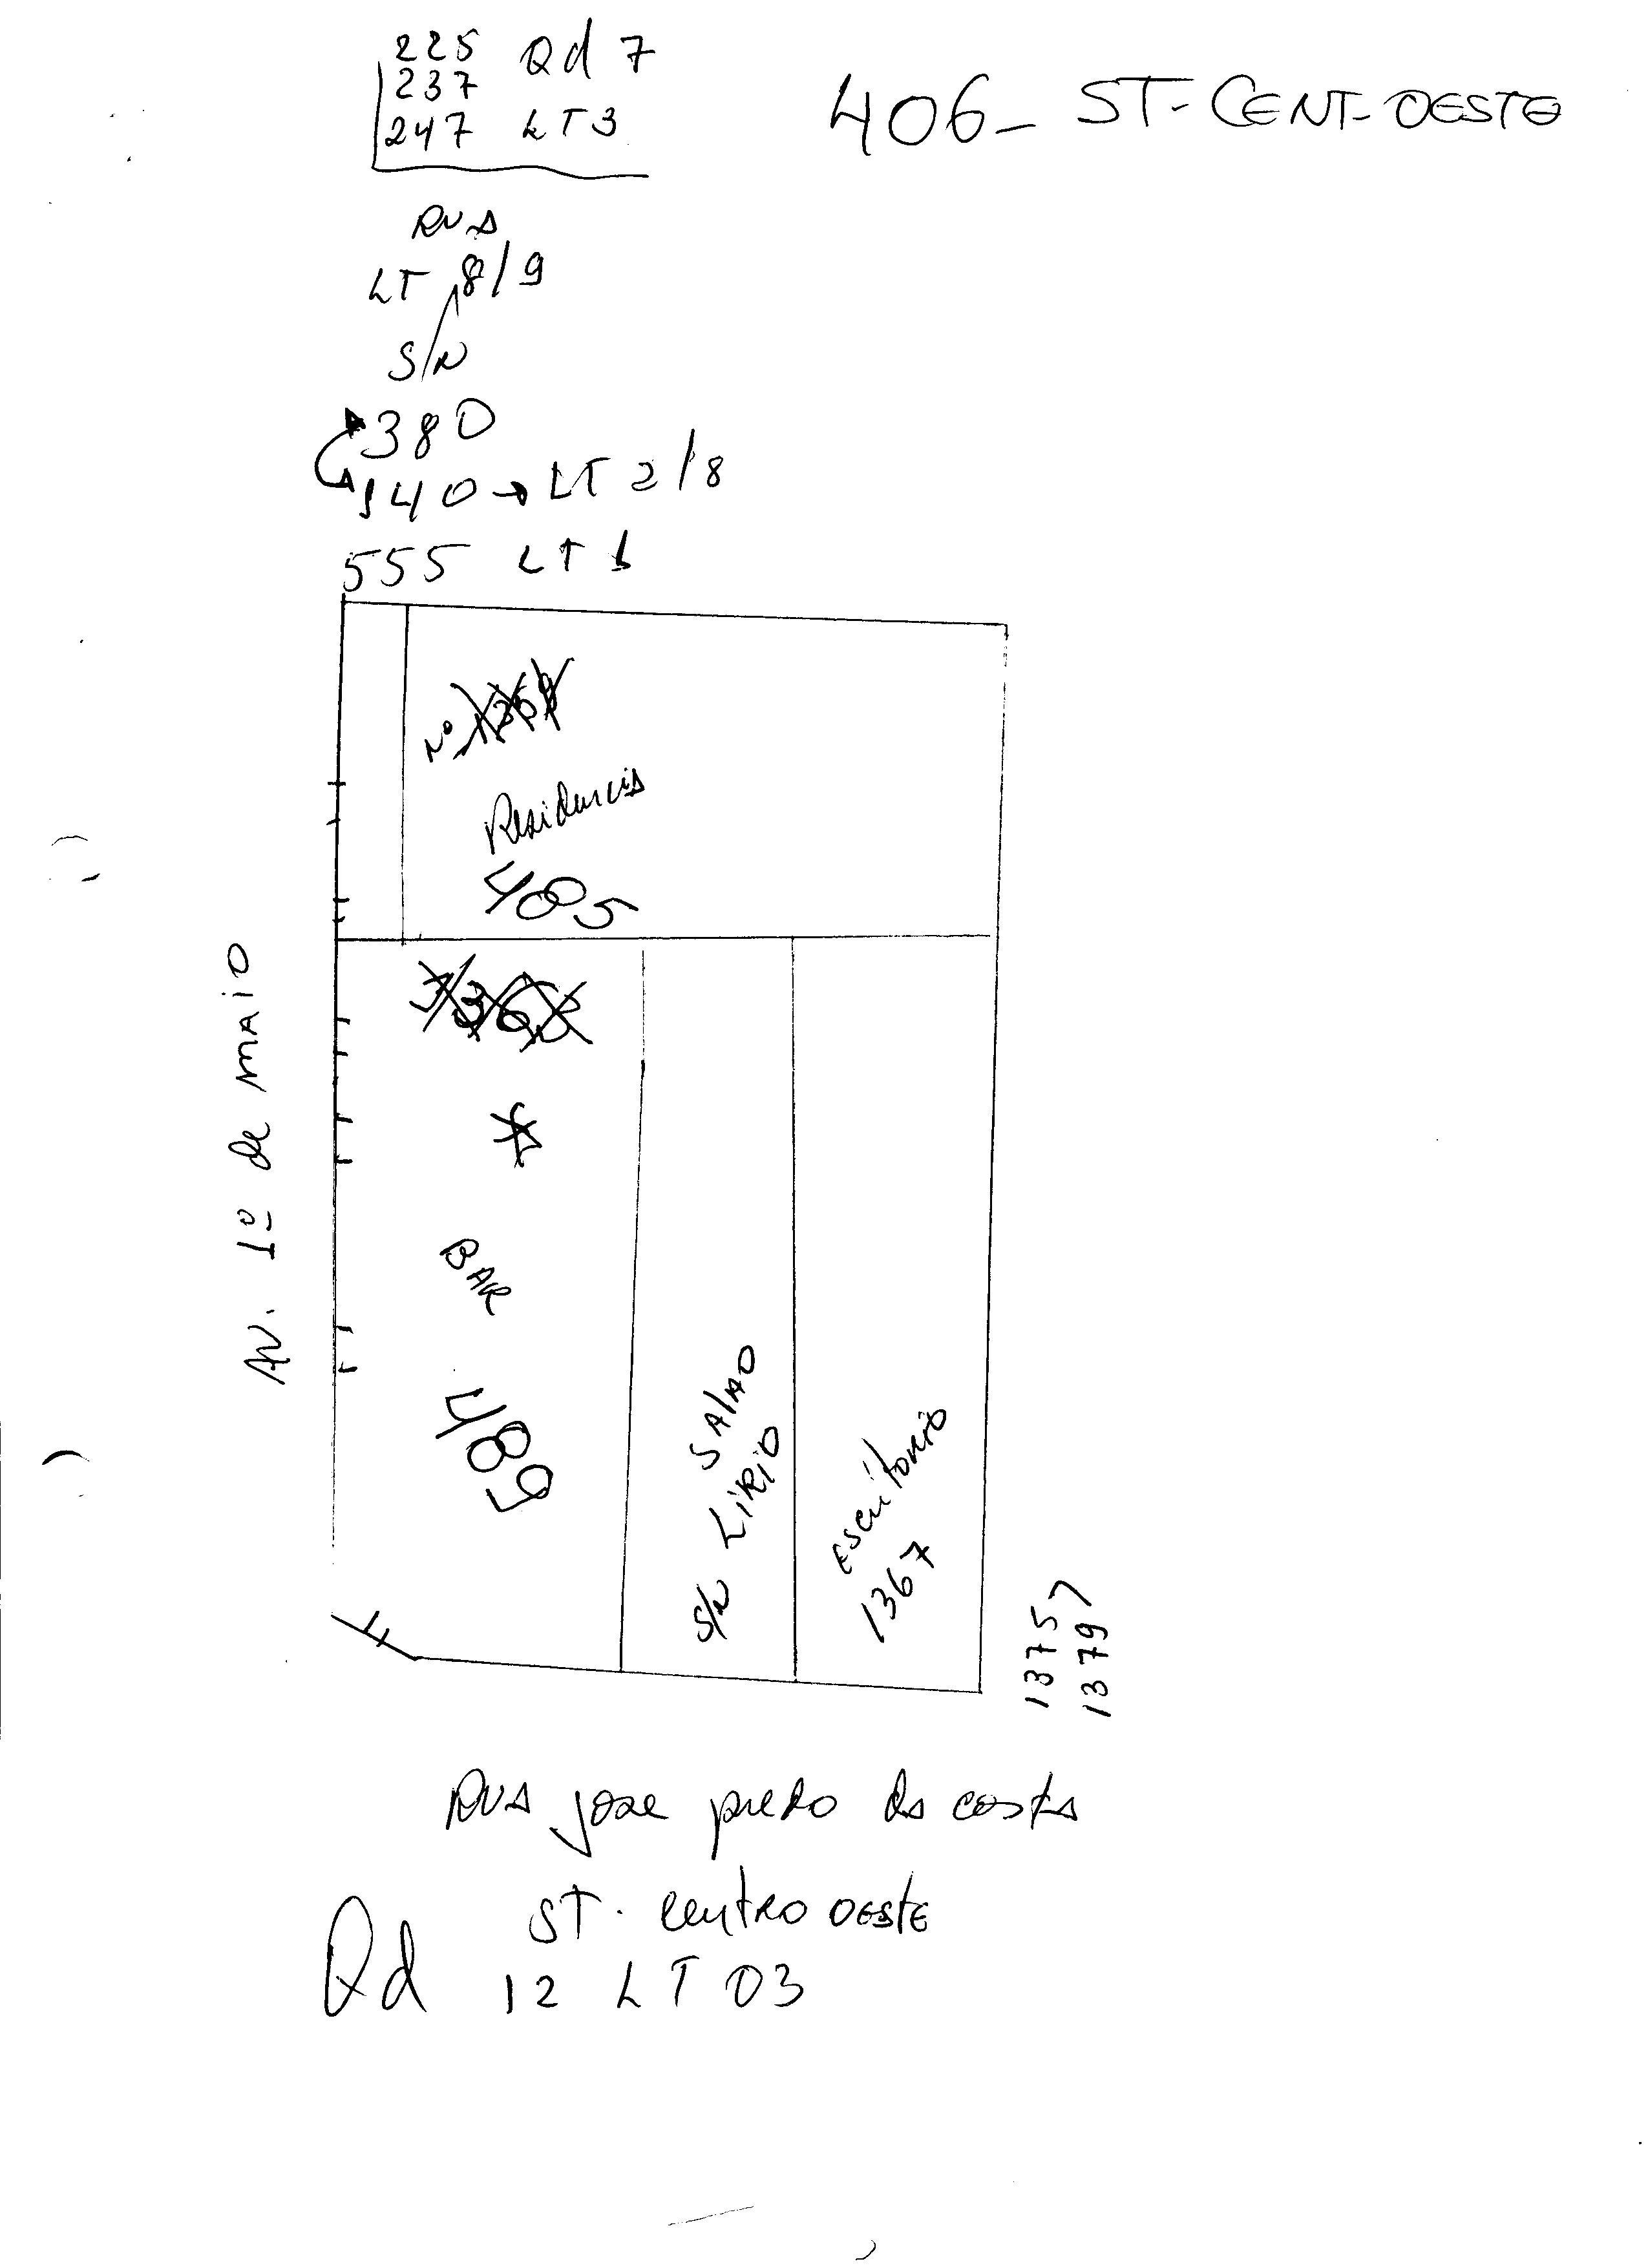 225 Qd 7
237
247 LT 3
406- ST- CENT- OESTE
RUA
LT 8/9
S/N
380
140 → LT 2/8
555 LT 1
Nº 1369
Residencia
485
1363
BAR
489
Av. 1º de MAiO
SALAO
LiRiO
S/N
escritorio
1367
1375
1379
RUA jose
da costa
ST. centro OESTE
Qd 12 LT 03